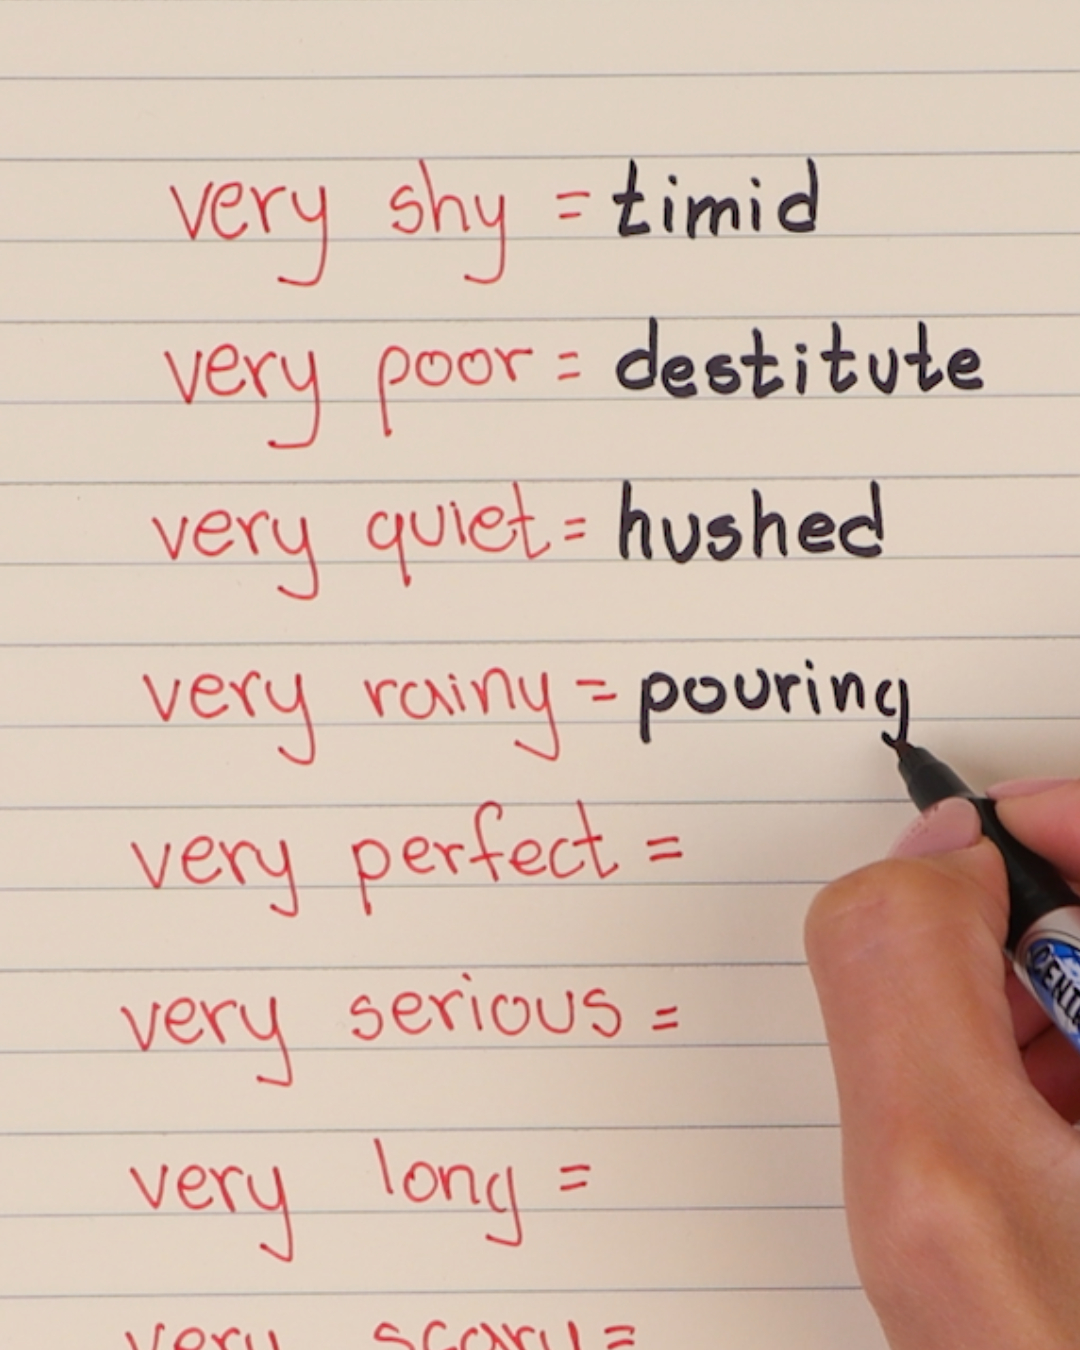 very shy = timid
very poor = destitute
very quiet = hushed
very rainy = pouring
very perfect =
very serious =
very long =
very scary =